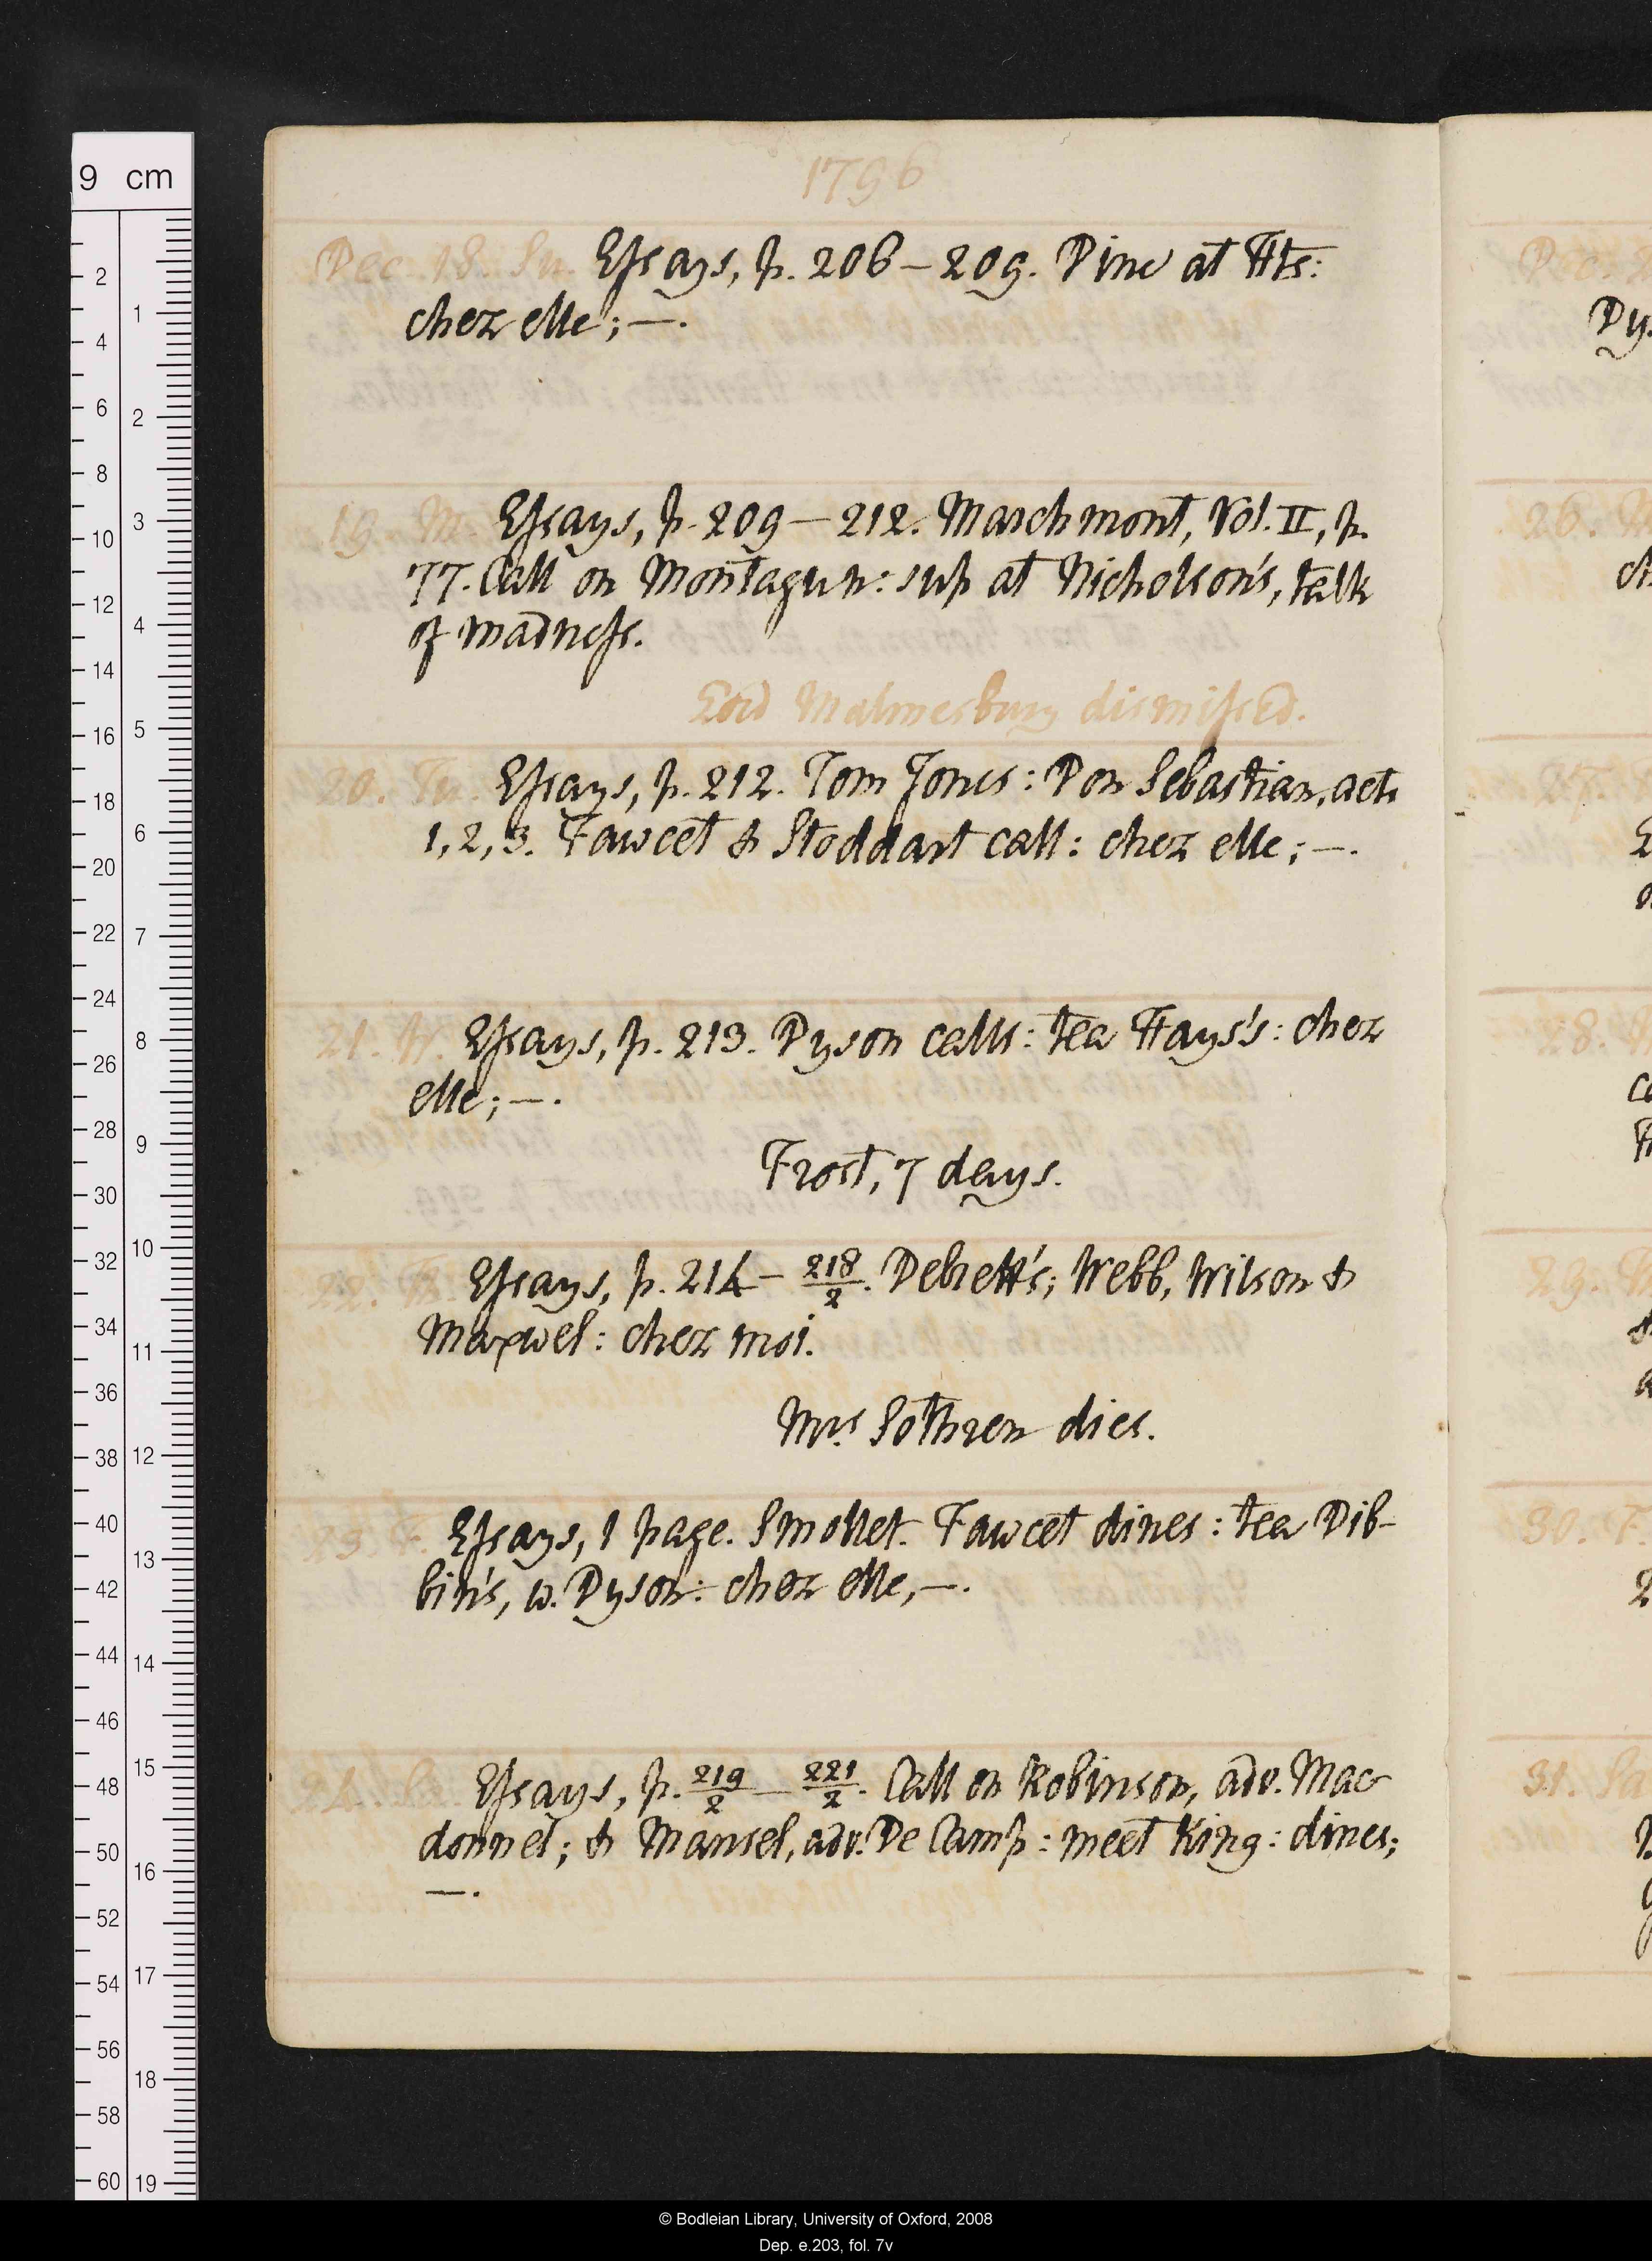 1796
Dec. 18. Su. Essays, p. 206 – 209. Dine at Hts:
chez elle; —.
19. M. Essays, p. 209 — 212. Marchmont, Vol. II, p.
77. Call on Montagu n: sup at Nicholson's, talk
of madness.
Lord Malmesbury dismissed.
20. Tu. Essays, p. 212. Tom Jones: Don Sebastian, acts
1, 2, 3. Fawcet & Stoddart call: chez elle; —.
21. W. Essays, p. 213. Dyson calls: tea Hays's: chez
elle; —.
Frost, 7 days.
22. Th. Essays, p. 214 – 218/2. Debrett's; Webb, Wilson &
Maxwel: chez moi.
Mrs. Sothren dies.
23. F. Essays, 1 page. Smollet. Fawcet dines: tea Dib-
bin's, w. Dyson: chez elle, —.
24. Sa. Essays, p. 219/2 — 221/2. Call on Robinson, adv. Mac
donnel; & Mansel, adv. De Camp: meet King: dines;
—.
9 cm
© Bodleian Library, University of Oxford, 2008
Dep. e.203, fol. 7v